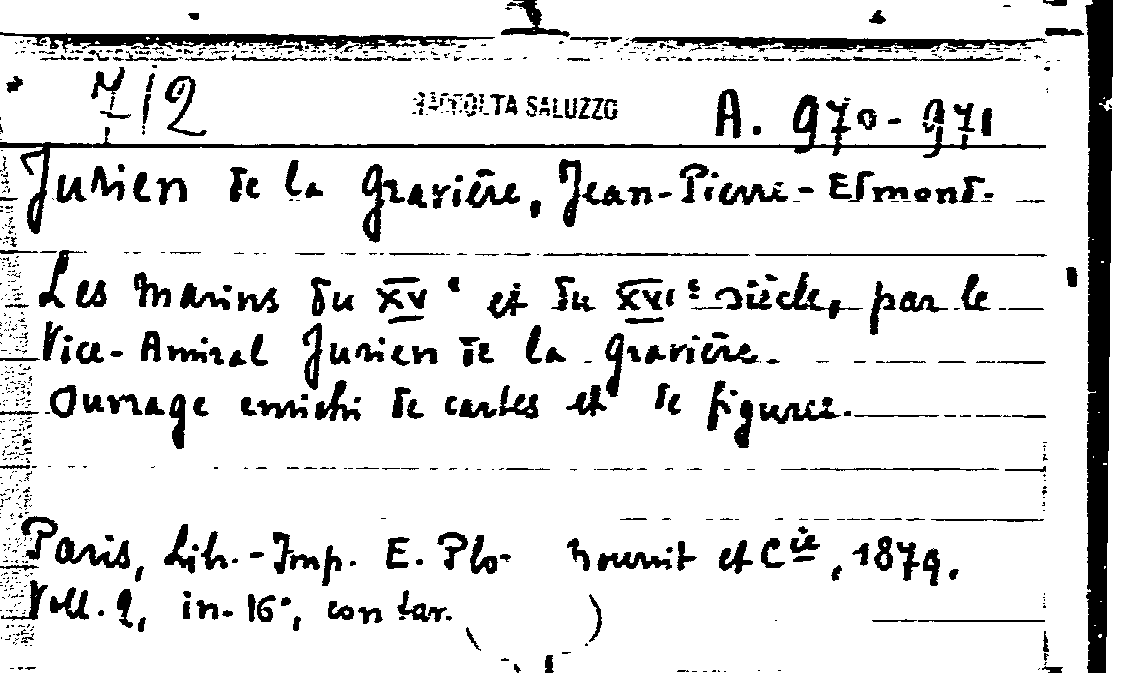 7/2 RACCOLTA SALUZZO A. 970-971
Jurien de la Gravière, Jean-Pierre-Edmond.
Les Marins du XVe et du XVIe siècle, par le
Vice-Amiral Jurien de la Gravière.
Ouvrage enrichi de cartes et de figures.
Paris, Lib.-Imp. E. Plo Nourrit et Cie, 1879.
Voll. 2, in-16°, con tav.